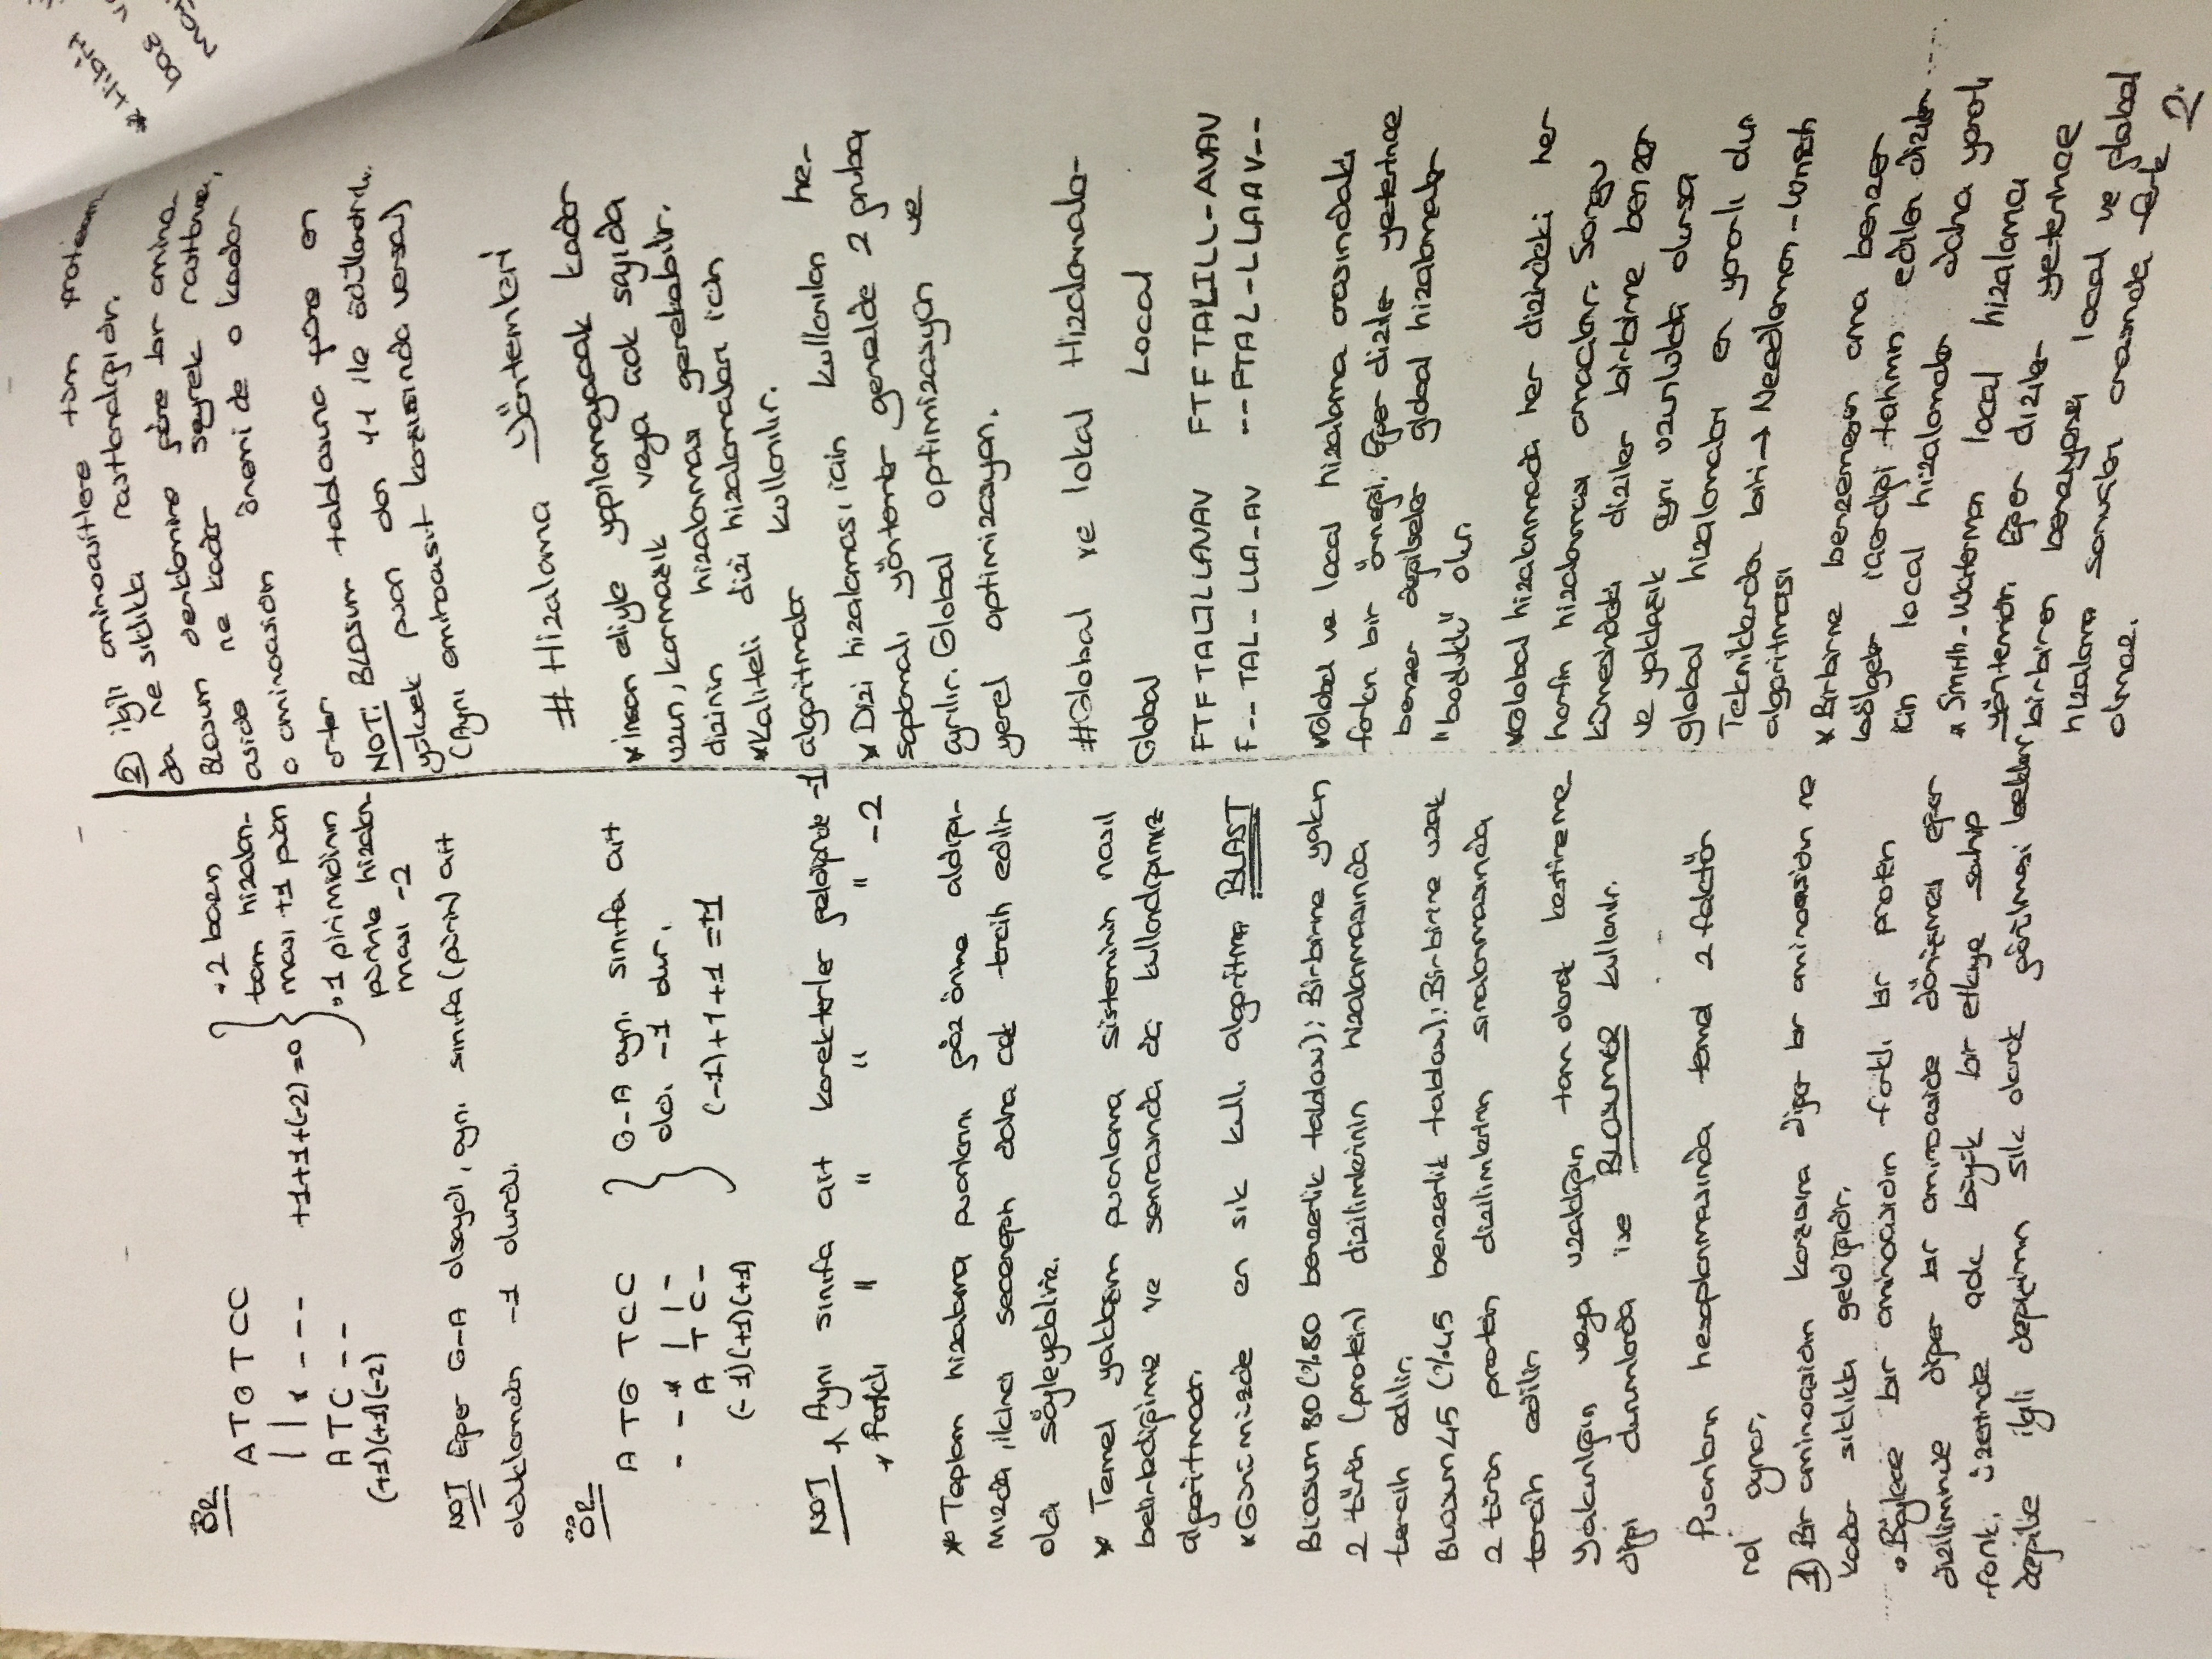 ÖR
A T G T C C
| | * - - -   +1+1+(-2)=0
A T C - -
(+1)(+1)(-2)
• 2 bazın
tam hizalan-
ması +1 puan
• 1 pirimidinin
pürinle hizalan-
ması -2
NOT Eğer G-A olsaydı, aynı sınıfa (pürin) ait
olduklarından -1 olurdu.
ÖR
A T G T C C
- - * | | -
A T C -
(-1)(+1)(+1)
G-A aynı sınıfa ait
old. -1 dir.
(-1)+1+1=+1
NOT * Aynı sınıfa ait karekterler geldiğinde -1
* farklı " " " " -2
* Toplam hizalama puanlarını göz önüne aldığı-
mızda, ikinci seçeneğin daha çok tercih edilir
old. söyleyebiliriz.
* Temel yaklaşım puanlama sisteminin nasıl
belirlediğimiz ve sonrasında da kullandığımız
algoritmadır.
* Günümüzde en sık kull. algoritma BLAST
BLOSUM 80 (%80 benzerlik tablosu): Birbirine yakın
2 türün (protein) dizilimlerinin hizalanmasında
tercih edilir.
BLOSUM45 (%45 benzerlik tablosu): Birbirine uzak
2 türün protein dizilimlerinin sıralanmasında
tercih edilir
Yakınlığın veya uzaklığın tam olarak kestireme
diği durumlarda ise BLOSUM62 kullanılır.
Puanların hesaplanmasında temel 2 faktör
rol oynar.
1) Bir aminoasidin karşısına diğer bir aminoasidin ne
kadar sıklıkta geldiğidir.
• Böylece bir aminoasidin farklı bir protein
diziliminde diğer bir aminoaside dönüşmesi eğer
fonk. üzerinde çok büyük bir etkiye sahip
değilse ilgili değişimin sık olarak görülmesi beklenir
2) ilgili aminoasitlere tüm proteom
da ne sıklıkta rastlandığıdır.
BLOSUM denklemine göre bir amino
aside ne kadar seyrek rastlanırsa,
o aminoasidin önemi de o kadar
artar
NOT: BLOSUM tablosuna göre en
yüksek puan olan 11 ile ödüllendirilir.
(Aynı aminoasit karşısında varsa)
# Hizalama Yöntemleri
* İnsan eliyle yapılamayacak kadar
uzun, karmaşık veya çok sayıda
dizinin hizalanması gerekebilir.
* Kaliteli dizi hizalamaları için
algoritmalar kullanılır.
* Dizi hizalaması için kullanılan he-
saplamalı yöntemler genelde 2 gruba
ayrılır. Global optimizasyon ve
yerel optimizasyon.
#Global ve lokal Hizalamala-
Global Local
FTFTALILLANAV FTFTALILL-AVAV
F--TAL-LLA-AV --FTAL-LLAAV--
* Global ve local hizalama arasındaki
farkın bir örneği. Eğer diziler yeterince
benzer değilseler global hizalamalar
"boşluklu" olur.
* Global hizalanmada her dizindeki her
harfin hizalanması amaçlanır. Sorgu
kümesindeki diziler birbirine benzer
ve yaklaşık aynı uzunlukta olursa
global hizalamalar en yararlı olur
Tekniklerden biri → Needleman-Wunsch
algoritması
* Birbirine benzemeyen ama benzer
bölgeler içerdiği tahmin edilen diziler
için local hizalamalar daha yararlı
* Smith-Waterman local hizalama
yöntemidir. Eğer diziler yeterince
birbirine benziyorsa local ve global
hizalama sonuçları arasında fark
olmaz.
2.
* Hibrit